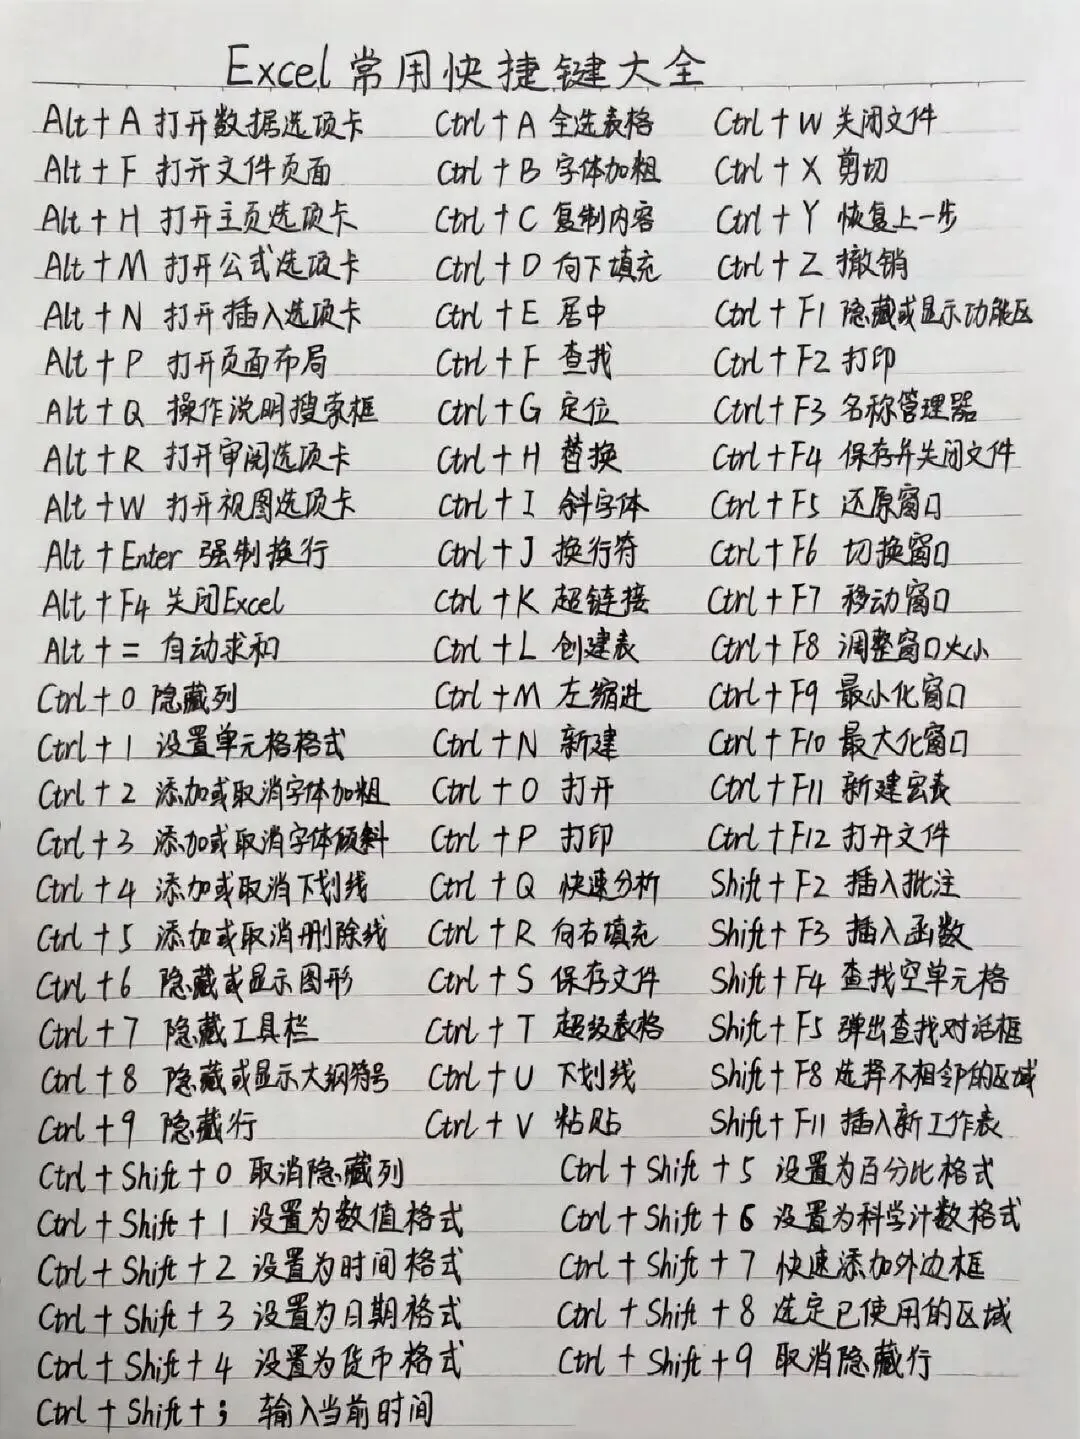 Excel常用快捷键大全
Alt+A 打开数据选项卡 Ctrl+A 全选表格 Ctrl+W 关闭文件
Alt+F 打开文件页面 Ctrl+B 字体加粗 Ctrl+X 剪切
Alt+H 打开主页选项卡 Ctrl+C 复制内容 Ctrl+Y 恢复上一步
Alt+M 打开公式选项卡 Ctrl+D 向下填充 Ctrl+Z 撤销
Alt+N 打开插入选项卡 Ctrl+E 居中 Ctrl+F1 隐藏或显示功能区
Alt+P 打开页面布局 Ctrl+F 查找 Ctrl+F2 打印
Alt+Q 操作说明搜索框 Ctrl+G 定位 Ctrl+F3 名称管理器
Alt+R 打开审阅选项卡 Ctrl+H 替换 Ctrl+F4 保存并关闭文件
Alt+W 打开视图选项卡 Ctrl+I 斜字体 Ctrl+F5 还原窗口
Alt+Enter 强制换行 Ctrl+J 换行符 Ctrl+F6 切换窗口
Alt+F4 关闭Excel Ctrl+K 超链接 Ctrl+F7 移动窗口
Alt+= 自动求和 Ctrl+L 创建表 Ctrl+F8 调整窗口大小
Ctrl+0 隐藏列 Ctrl+M 左缩进 Ctrl+F9 最小化窗口
Ctrl+1 设置单元格格式 Ctrl+N 新建 Ctrl+F10 最大化窗口
Ctrl+2 添加或取消字体加粗 Ctrl+O 打开 Ctrl+F11 新建宏表
Ctrl+3 添加或取消字体倾斜 Ctrl+P 打印 Ctrl+F12 打开文件
Ctrl+4 添加或取消下划线 Ctrl+Q 快速分析 Shift+F2 插入批注
Ctrl+5 添加或取消删除线 Ctrl+R 向右填充 Shift+F3 插入函数
Ctrl+6 隐藏或显示图形 Ctrl+S 保存文件 Shift+F4 查找空单元格
Ctrl+7 隐藏工具栏 Ctrl+T 超级表格 Shift+F5 弹出查找对话框
Ctrl+8 隐藏或显示大纲符号 Ctrl+U 下划线 Shift+F8 选择不相邻的区域
Ctrl+9 隐藏行 Ctrl+V 粘贴 Shift+F11 插入新工作表
Ctrl+Shift+0 取消隐藏列 Ctrl+Shift+5 设置为百分比格式
Ctrl+Shift+1 设置为数值格式 Ctrl+Shift+6 设置为科学计数格式
Ctrl+Shift+2 设置为时间格式 Ctrl+Shift+7 快速添加外边框
Ctrl+Shift+3 设置为日期格式 Ctrl+Shift+8 选定已使用的区域
Ctrl+Shift+4 设置为货币格式 Ctrl+Shift+9 取消隐藏行
Ctrl+Shift+; 输入当前时间